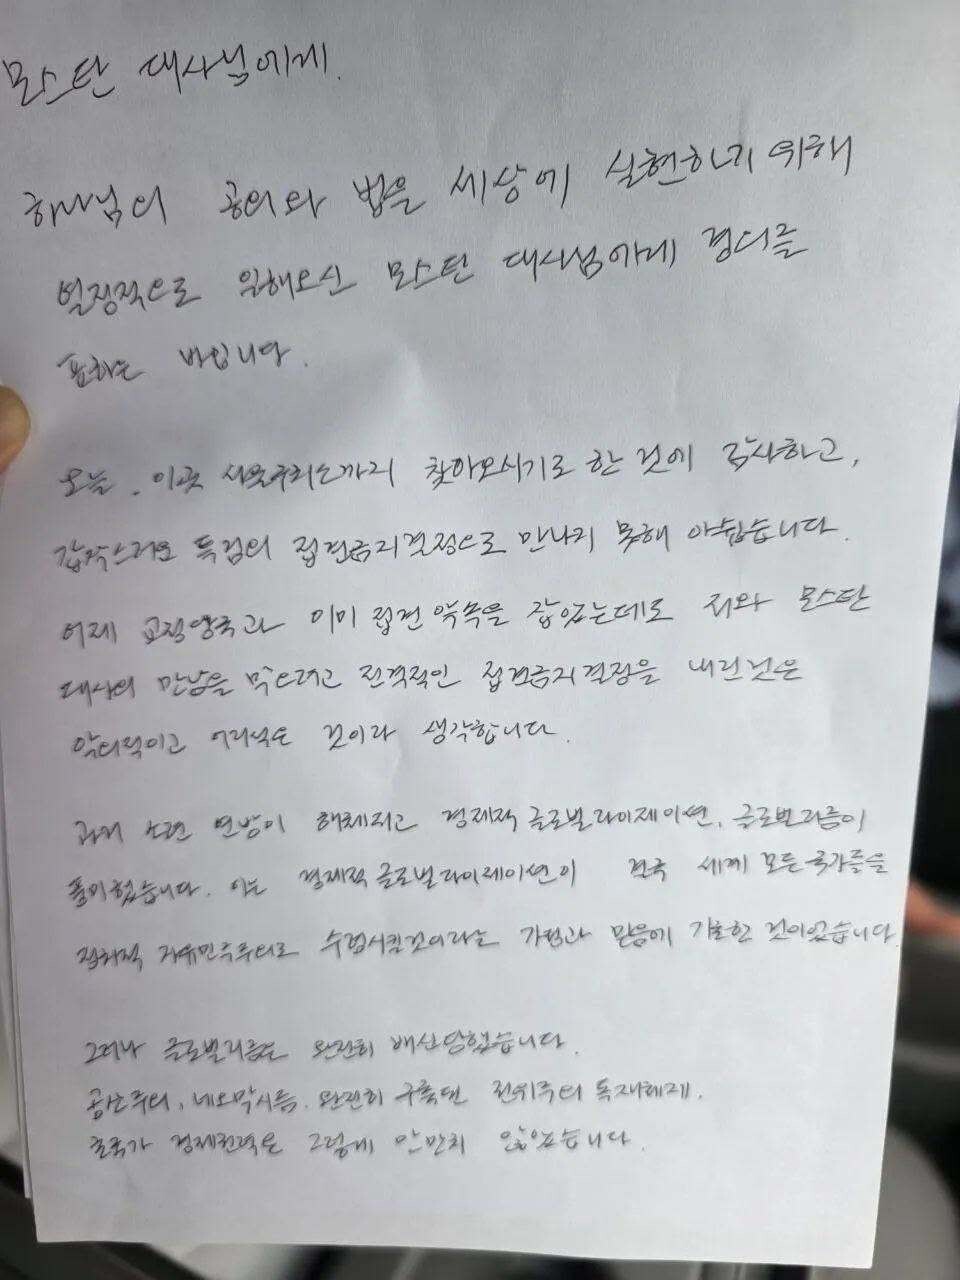 모스탄 대사님에게.
하나님의 공의와 법을 세상에 실현하기 위해
열정적으로 일해오신 모스탄 대사님에게 경의를
표하는 바입니다.
오늘, 이곳 서울구치소까지 찾아오시기로 한 것에 감사하고,
갑작스러운 특검의 접견금지결정으로 만나지 못해 아쉽습니다.
어제 교정당국과 이미 접견 약속을 잡았는데도 저와 모스탄
대사의 만남을 막으려고 전격적인 접견금지결정을 내린것은
악의적이고 어리석은 것이라 생각합니다.
과거 소련 연방이 해체되고 경제적 글로벌라이제이션, 글로벌리즘이
풍미했습니다. 이는 경제적 글로벌라이제이션이 결국 세계 모든 국가들을
정치적 자유민주주의로 수렴시킬것이라는 가정과 믿음에 기초한 것이었습니다.
그러나 글로벌리즘은 완전히 배신당했습니다.
공산주의, 네오막시즘, 완전히 구축된 전위주의 독재체제,
초국가 경제권력은 그렇게 만만치 않았습니다.